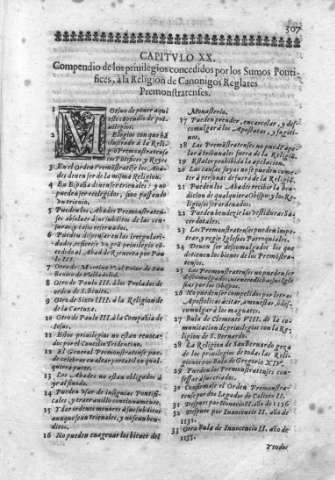 307
CAPITVLO XX.
Compendio de los priuilegios concedidos por los Sumos Pontifices, à la Religion de Canonigos Reglares
Premonstratenses.
1 Motiuo de poner aqui
este
2 Elogios con que
à la Religion
Premonstratense
los Pontifices, y Reyes
3 En el Orden Premonstratense los Abades
de la misma Religion.
4 En España
no pueden ser reelegidos, sino passado
vn trienio.
5 Pueden los Abades Premonstratenses absoluer à sus subditos de las censuras
6 Pueden dispensar en las irregularidades
cedido al Abad de
II.
7 Otro de Martino V. al Prior de San
Benito de Valladolid.
8 Otro de Paulo IIII. à los Prelados de
orden de S. Benito.
9 Otro de Sixto IIII. à la Religion de
la Cartuxa.
10 Otro de Paulo III. à la Compañia de
Iesus.
11 Estos priuilegios no estan reuocados por el Concilio Tridentino.
12 El General Premonstratense puede celebrar en altar portatil en qualquiera parte.
13 Los Abades no estan obligados à
ir al synodo.
14 Pueden vsar de insignias Pontificales, y traer anillo continuamente.
15 Y dar ordenes menores à sus subditos
aunque sean Trienales, y no sean benditos.
16 No pueden enagenar los bienes del
Monasterio.
17 Pueden prender, encarcelar, y descomulgar à los Apostatas, y fugitiuos.
18 Los Premonstratenses no pueden apelar à tribunales fuera de la Religion.
19 Està les prohibida la apelacion.
20 Las causas suyas no se pueden cometer à personas de fuera de la Religion.
21 Pueden los Abades recibir la bendicion de qualquiera Obispo, y los Religiosos
22 Pueden bendezir las vestiduras Sacerdotales.
23 Los Premonstratenses pueden impetrar, y regir Iglesias Parroquiales.
24 Deuen ser descomulgados los que
detienen los bienes de los Premonstratenses.
25 Los Premonstratenses no pueden ser
descomulgados,
26 No pueden ser compelidos por letras
Apostolicas à citar, amonestar, ò descomulgar à los magnates.
27 Bula de Clemente VIII. de la comunicacion de priuilegios con la Religion de S. Bernardo.
28 La Religion de San Bernardo goza
de los priuilegios de todas las Religiones con Bula de Gregorio XIV.
29 Pueden los Premonstratenses confessar à
30 Confirmase el Orden Premonstratense por dos Legados de Calixto II.
31 Despues por Honorio II. año de 1126
32 Despues por Innocencio II. año de
1131.
33 Otra Bula de Innocencio II. año de
Y todos